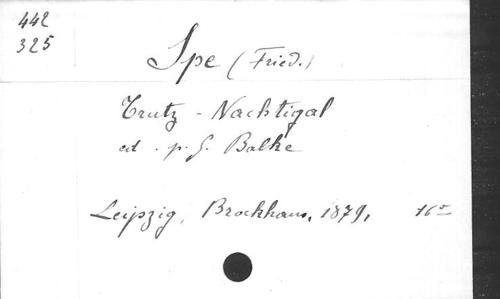 442
325
Spe (Fried.)
Trutz - Nachtigal
ed. p. G. Balke
Leipzig, Brockhaus, 1879, 16°